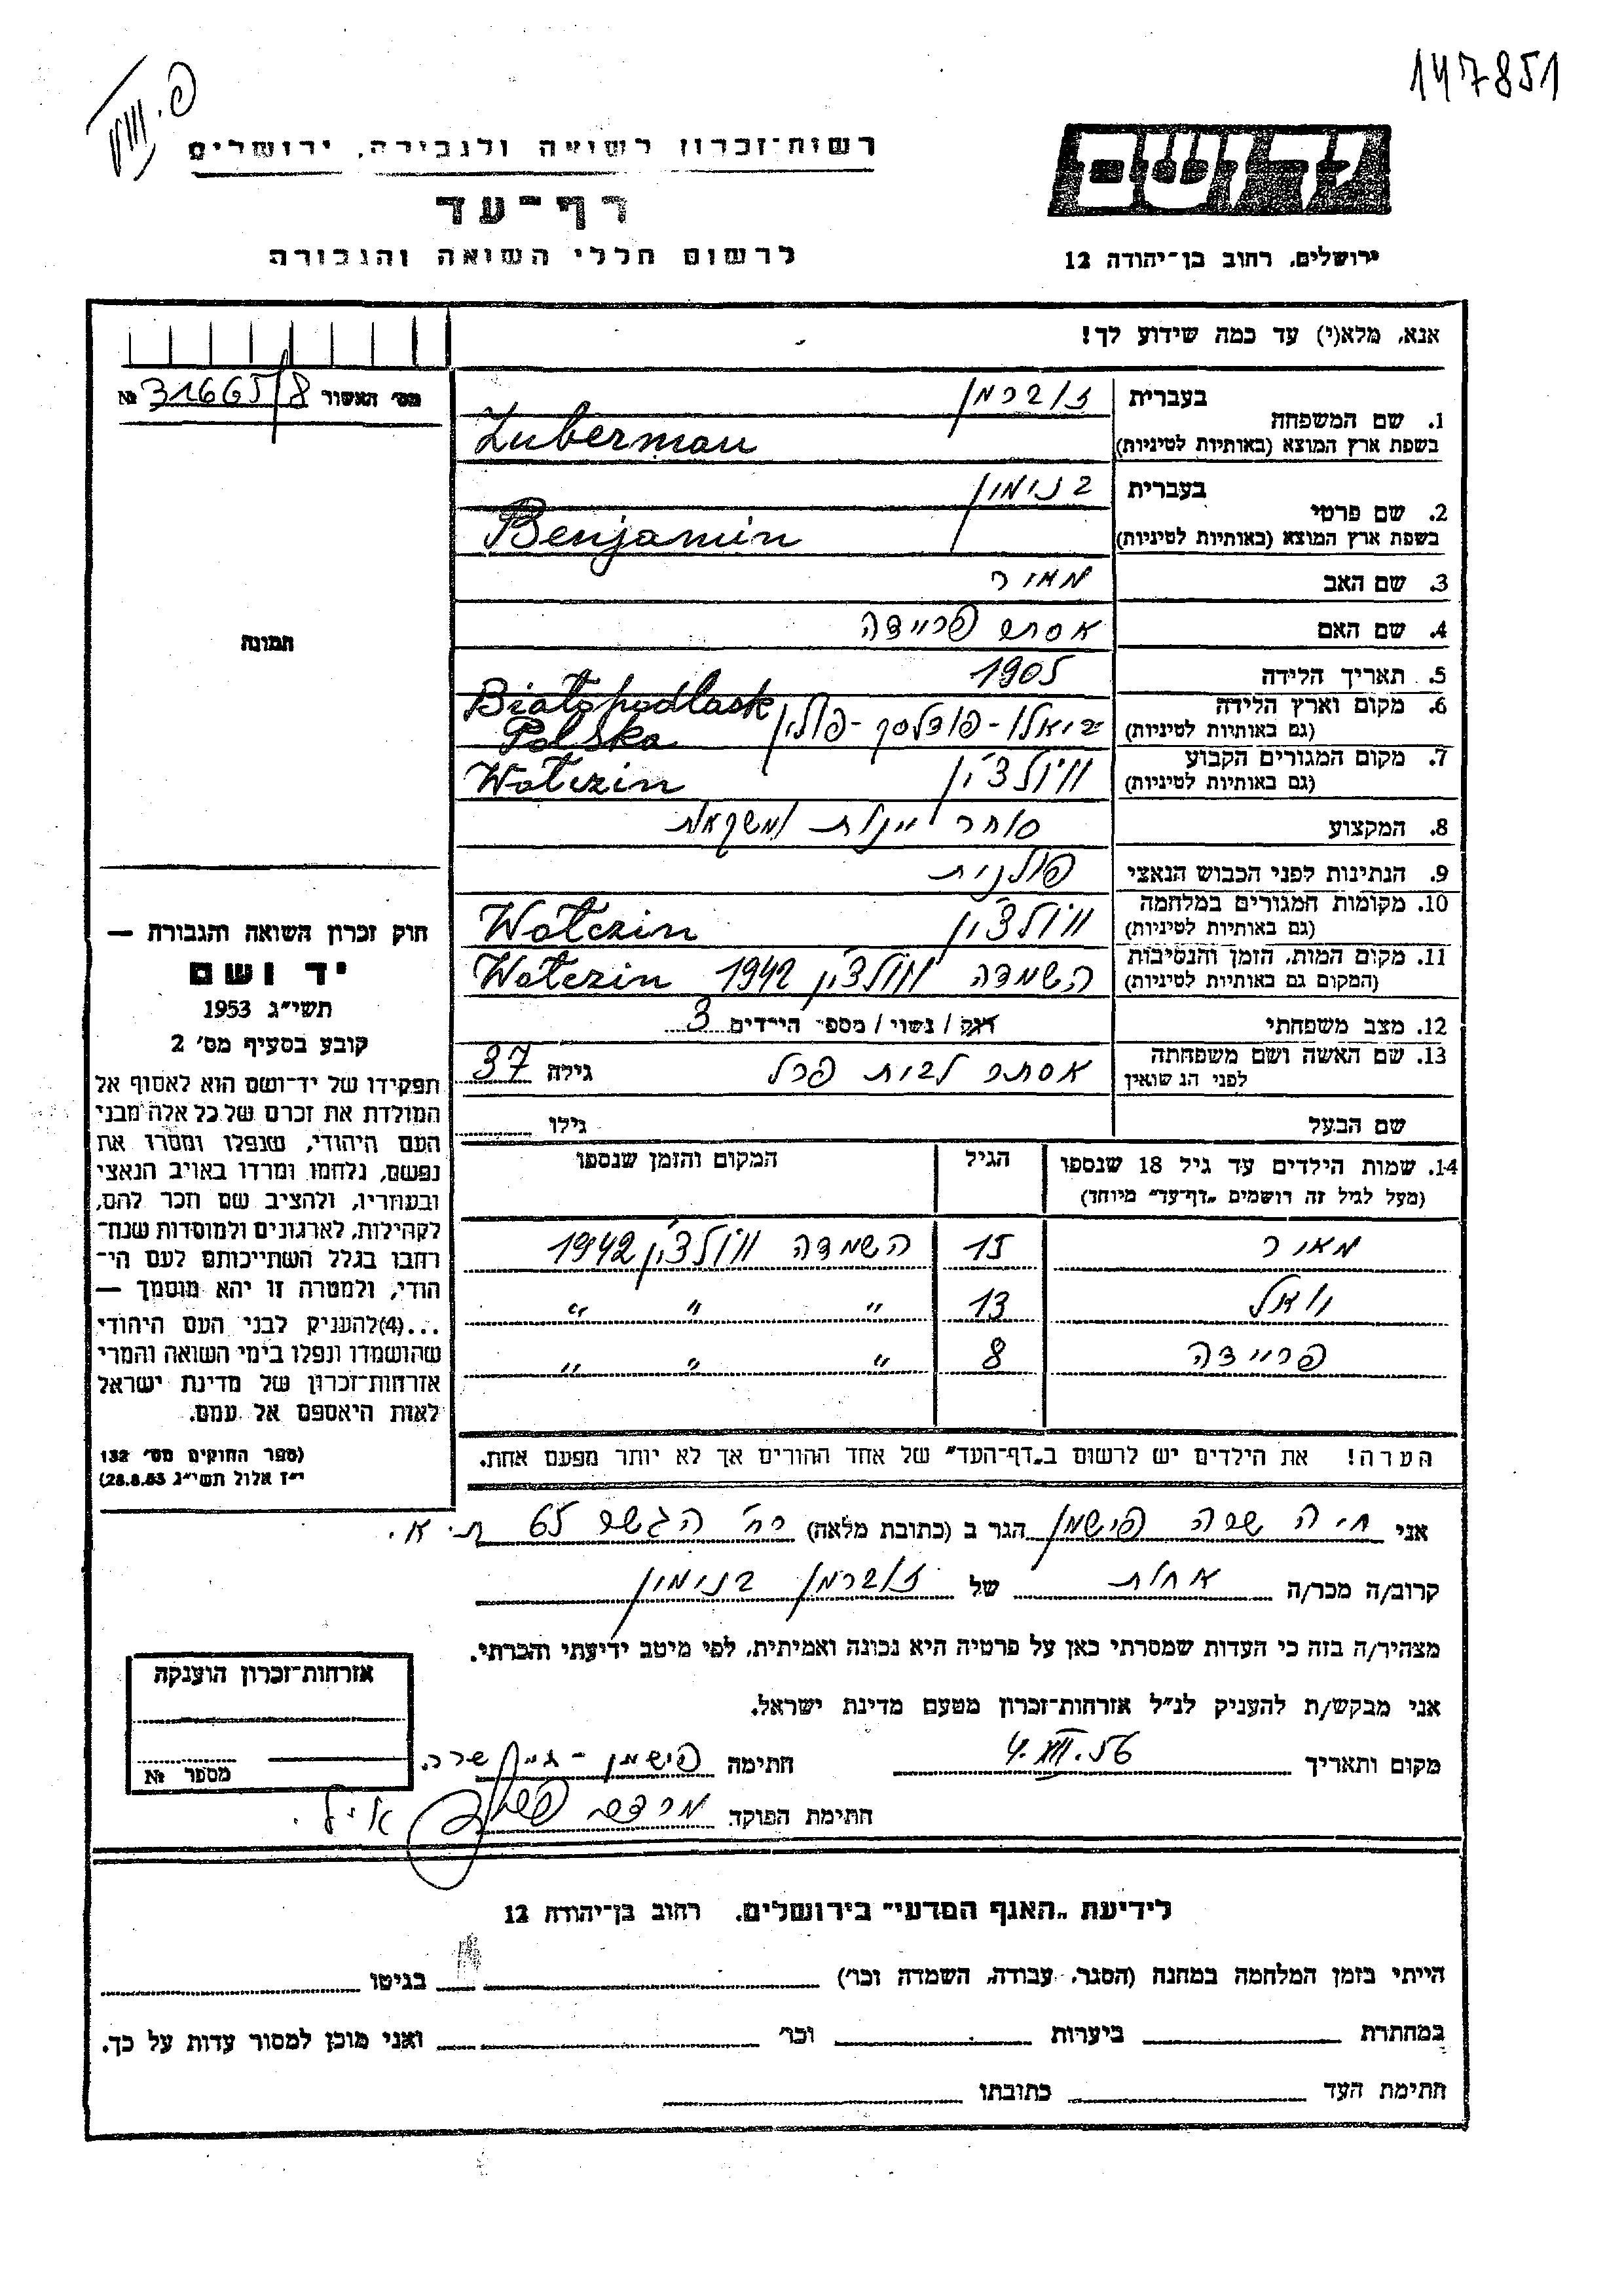 147851
יד ושם
רשות־זכרון לשואה ולגבורה, ירושלים
דף־עד
לרשום חללי השואה והגבורה
ירושלים, רחוב בן־יהודה 12
אנא, מלא(י) עד כמה שידוע לך!
מס' האשור № 31665/8
1. שם המשפחה בעברית זוברמן
בשפת ארץ המוצא (באותיות לטיניות) Zuberman
2. שם פרטי בעברית בנימין
בשפת ארץ המוצא (באותיות לטיניות) Benjamin
3. שם האב מאיר
4. שם האם אסתר פריידה
תמונה
5. תאריך הלידה 1905
6. מקום וארץ הלידה (גם באותיות לטיניות) ביאלו-פודלסק-פולין Białopodlask Polska
7. מקום המגורים הקבוע (גם באותיות לטיניות) וולצ'ין Wołczin
8. המקצוע סוחר יינות ומשקאות
9. הנתינות לפני הכבוש הנאצי פולנית
10. מקומות המגורים במלחמה (גם באותיות לטיניות) וולצ'ין Wołczin
11. מקום המות, הזמן והנסיבות (המקום גם באותיות לטיניות) השמדה וולצ'ין 1942 Wołczin
12. מצב משפחתי רוק / נשוי / מספר הילדים 3
13. שם האשה ושם משפחתה לפני הנשואין אסתר לבית פרל גילה 37
שם הבעל גילו
14. שמות הילדים עד גיל 18 שנספו הגיל המקום והזמן שנספו
(מעל לגיל זה רושמים „דף־עד" מיוחד)
מאיר 15 השמדה וולצ'ין 1942
13 " " "
פריידה 8 " " "
הערה! את הילדים יש לרשום ב„דף־העד" של אחד ההורים אך לא יותר מפעם אחת.
חוק זכרון השואה והגבורה —
יד ושם
תשי"ג 1953
קובע בסעיף מס' 2
תפקידו של יד־ושם הוא לאסוף אל
המולדת את זכרם של כל אלה מבני
העם היהודי, שנפלו ומסרו את
נפשם, נלחמו ומרדו באויב הנאצי
ובעוזריו, ולהציב שם וזכר להם,
לקהילות, לארגונים ולמוסדות שנח־
רחבו בגלל השתייכותם לעם הי־
הודי, ולמטרה זו יהא מוסמך —
...(4)להעניק לבני העם היהודי
שהושמדו ונפלו בימי השואה והמרי
אזרחות־זכרון של מדינת ישראל
לאות היאספם אל עמם.
(ספר החוקים מס' 132
י"ז אלול תשי"ג 28.8.53)
אני חיה שרה פישמן הגר ב (כתובת מלאה) רח' הגשר 65 ת.א.
קרוב/ה מכר/ה אחות של זוברמן בנימין
מצהיר/ה בזה כי העדות שמסרתי כאן על פרטיה היא נכונה ואמיתית, לפי מיטב ידיעתי והכרתי.
אני מבקש/ת להעניק לנ"ל אזרחות־זכרון מטעם מדינת ישראל.
מקום ותאריך 4.VII.56 חתימה פישמן - שרה
חתימת הפוקד מרדכי
אזרחות־זכרון הוענקה
מספר №
לידיעת „האגף המדעי" בירושלים, רחוב בן־יהודה 12
הייתי בזמן המלחמה במחנה (הסגר, עבודה, השמדה וכו') בגיטו
במחתרת ביערות וכו' ואני מוכן למסור עדות על כך.
חתימת העד כתובתו